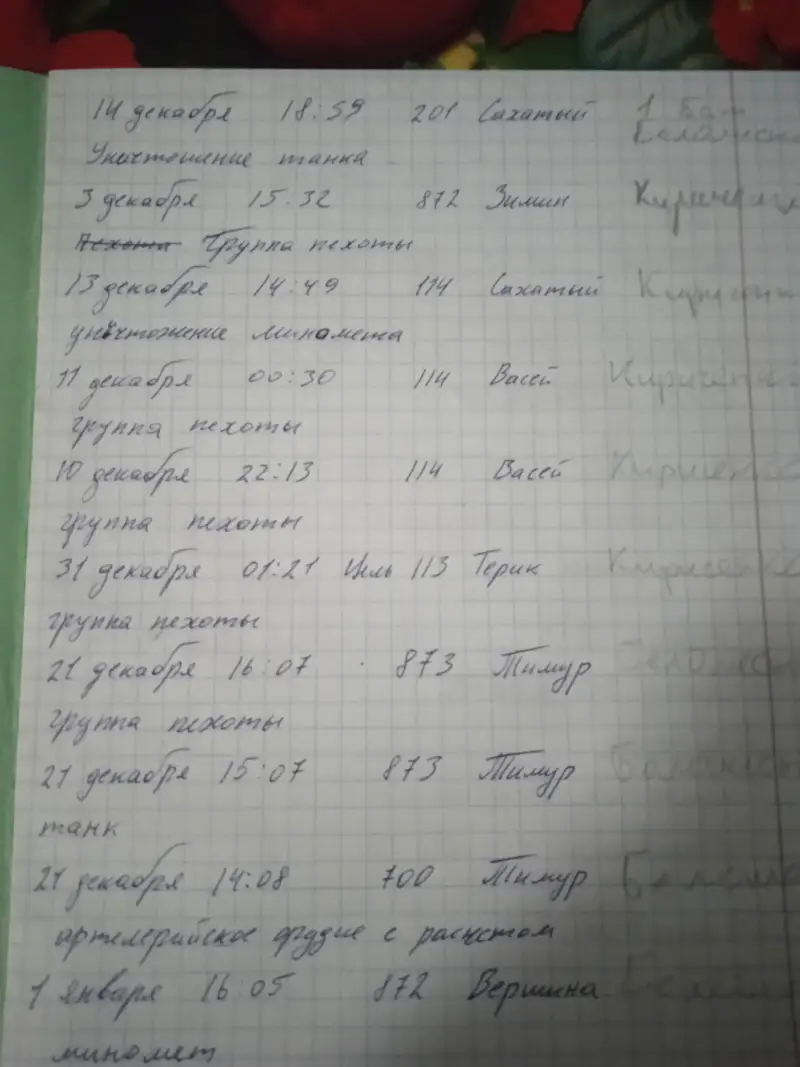 14 декабря 18:59 201 Сахатый 1 Бат
Уничтошение танка
3 декабря 15.32 872 Зимин
Пехоты Группа пехоты
13 декабря 14:49 114 Сахатый
уничтожение миномета
11 декабря 00:30 114 Васей Кириченк
группа пехоты
10 декабря 22:13 114 Васей
группа пехоты
31 декабря 01:21 Цель 113 Терик
группа пехоты
21 декабря 16:07 873 Тимур
группа пехоты
21 декабря 15:07 873 Тимур
танк
21 декабря 14:08 700 Тимур
артелерийское орудие с расчетом
1 января 16:05 872 Вершина
миномет